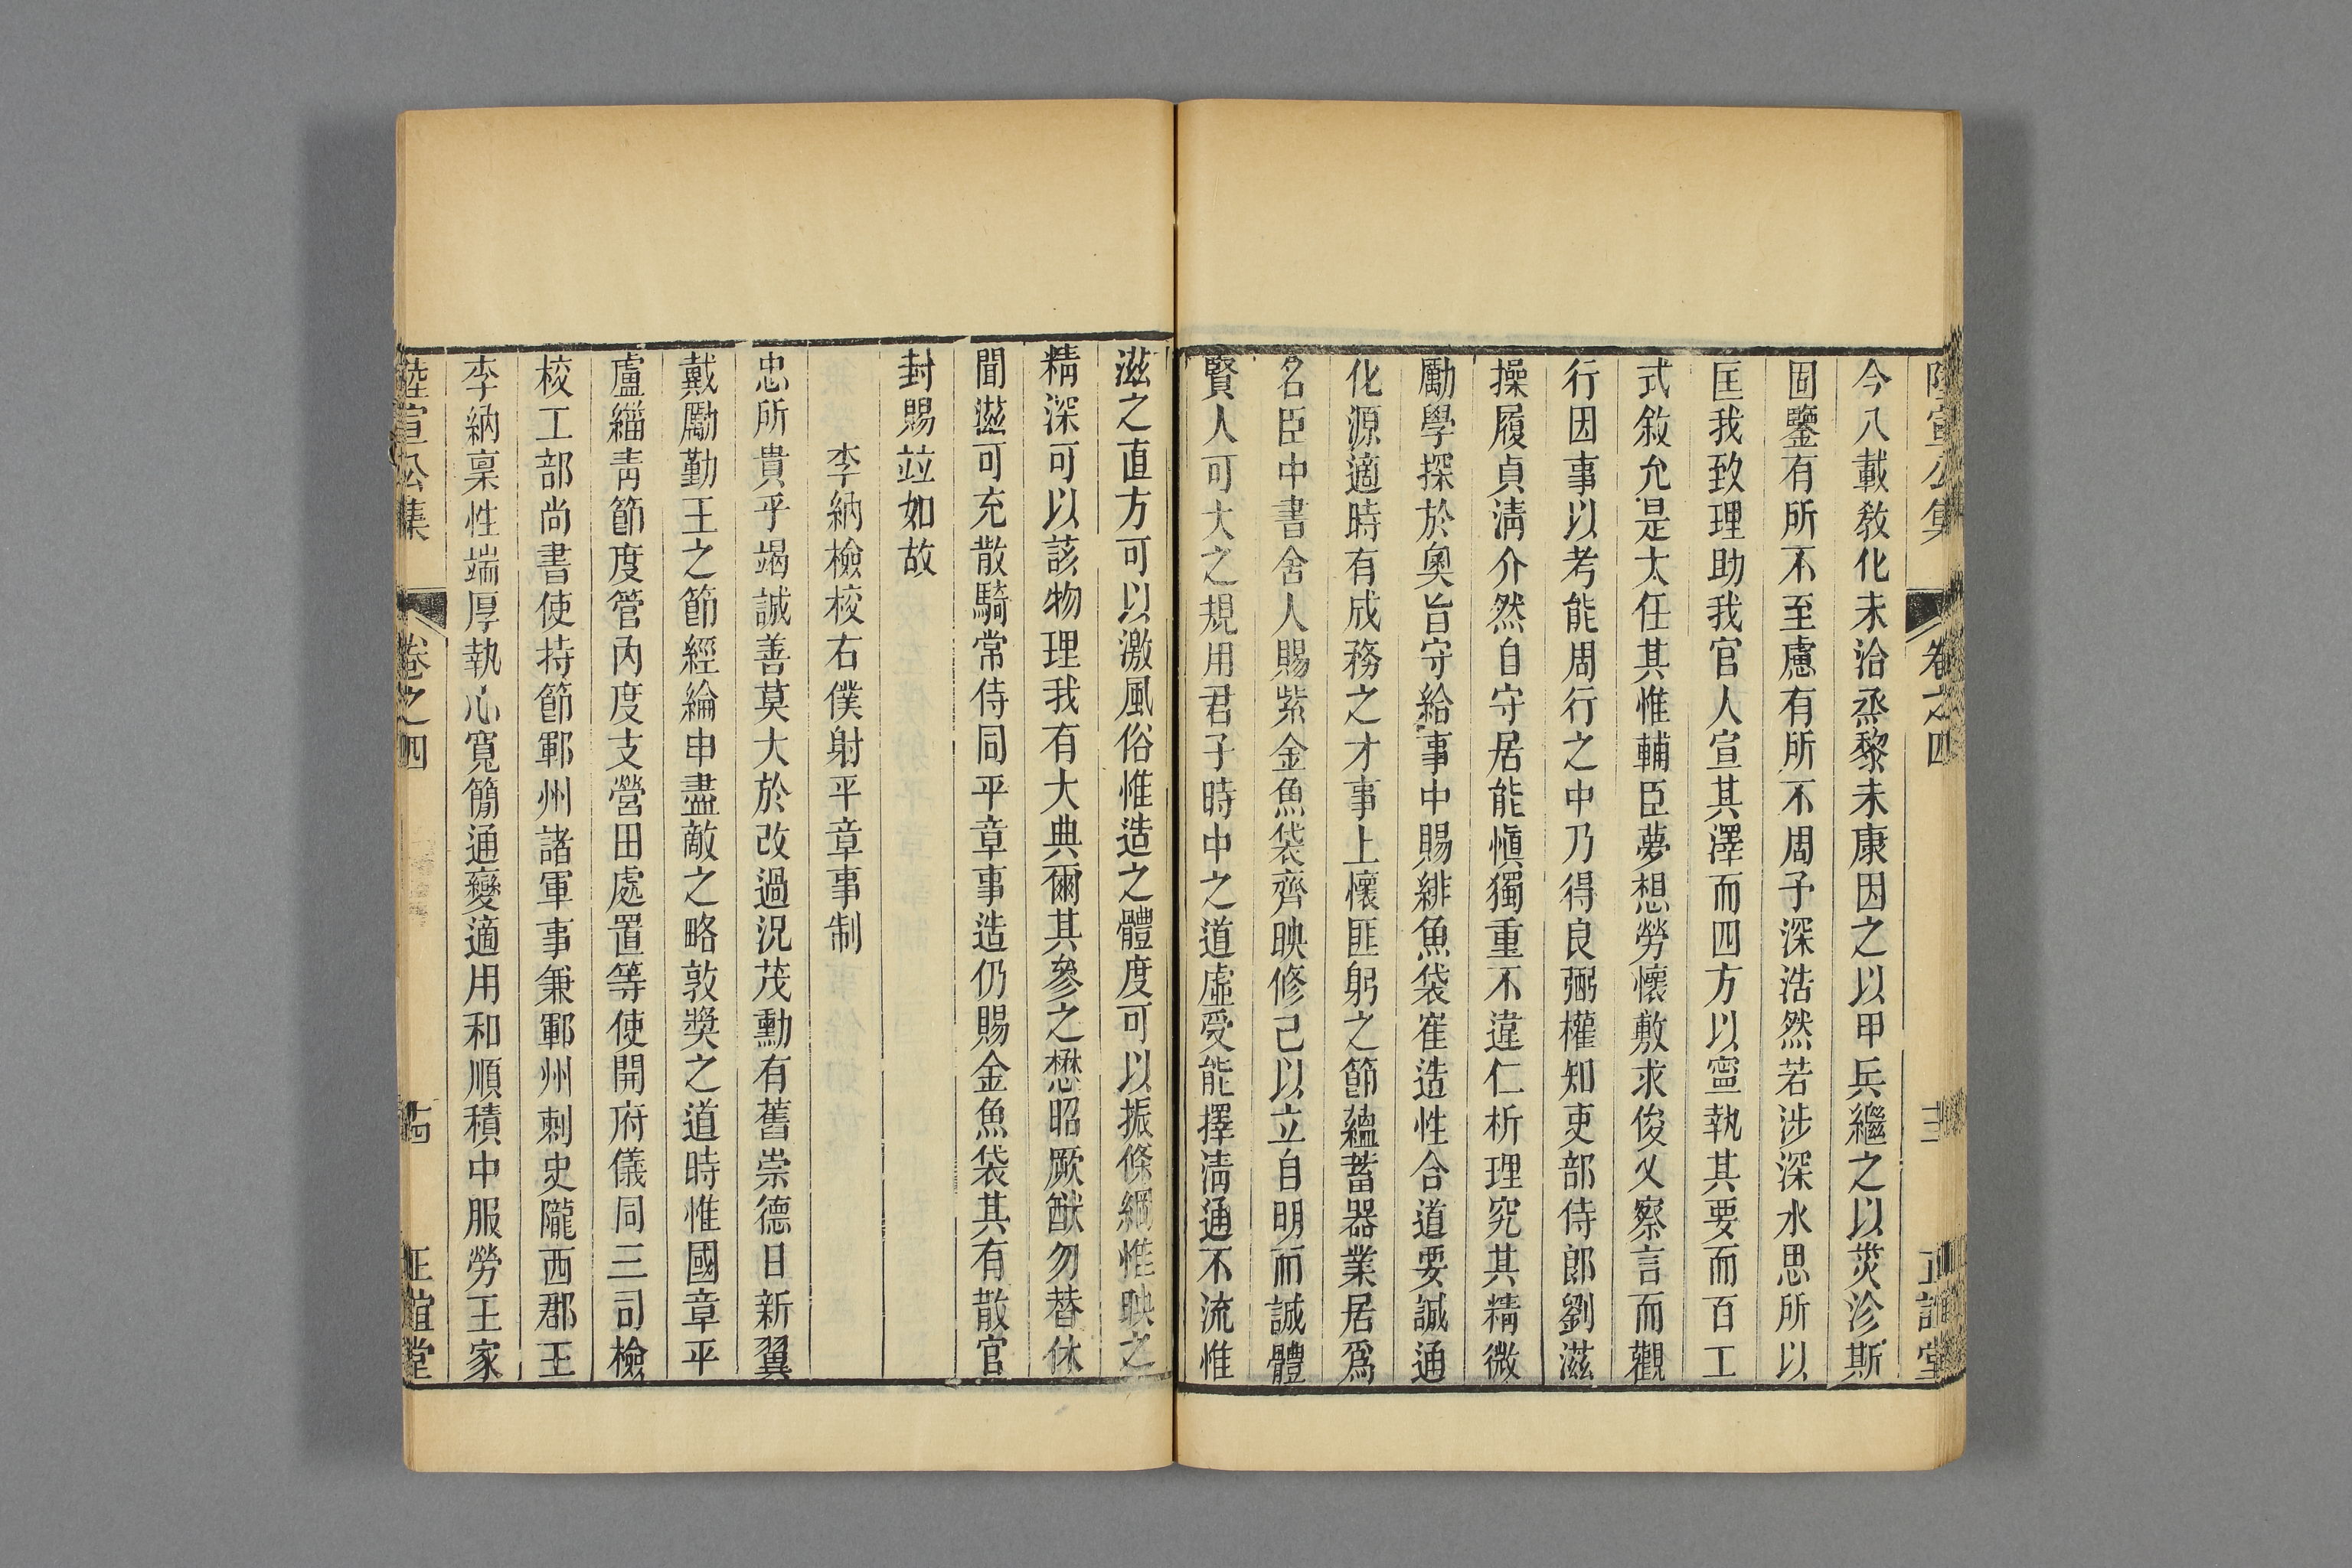 陸宣公集 卷之四 十三 正誼堂
今八載敎化未洽烝黎未康因之以甲兵繼之以災沴斯
固鑒有所不至慮有所不周予深浩然若涉深水思所以
匡我致理助我官人宣其澤而四方以寧執其要而百工
式敘允是大任其惟輔臣夢想勞懷敷求俊乂察言而觀
行因事以考能周行之中乃得良弼權知吏部侍郎劉滋
操履貞淸介然自守居能愼獨重不違仁析理究其精微
勵學探於奧旨守給事中賜緋魚袋崔造性合道要誠通
化源適時有成務之才事上懷匪躬之節蘊蓄器業居爲
名臣中書舍人賜紫金魚袋齊映修己以立自明而誠體
賢人可大之規用君子時中之道虛受能擇淸通不流惟
滋之直方可以激風俗惟造之體度可以振條綱惟映之
精深可以該物理我有大典爾其參之懋昭厥猷勿替休
聞滋可充散騎常侍同平章事造仍賜金魚袋其有散官
封賜竝如故
李納檢校右僕射平章事制
忠所貴乎竭誠善莫大於改過況茂勳有舊崇德日新翼
戴勵勤王之節經綸申盡敵之略敦獎之道時惟國章平
盧緇靑節度管內度支營田處置等使開府儀同三司檢
校工部尚書使持節鄆州諸軍事兼鄆州刺史隴西郡王
李納稟性端厚執心寬簡通變適用和順積中服勞王家
陸宣公集 卷之四 十四 正誼堂